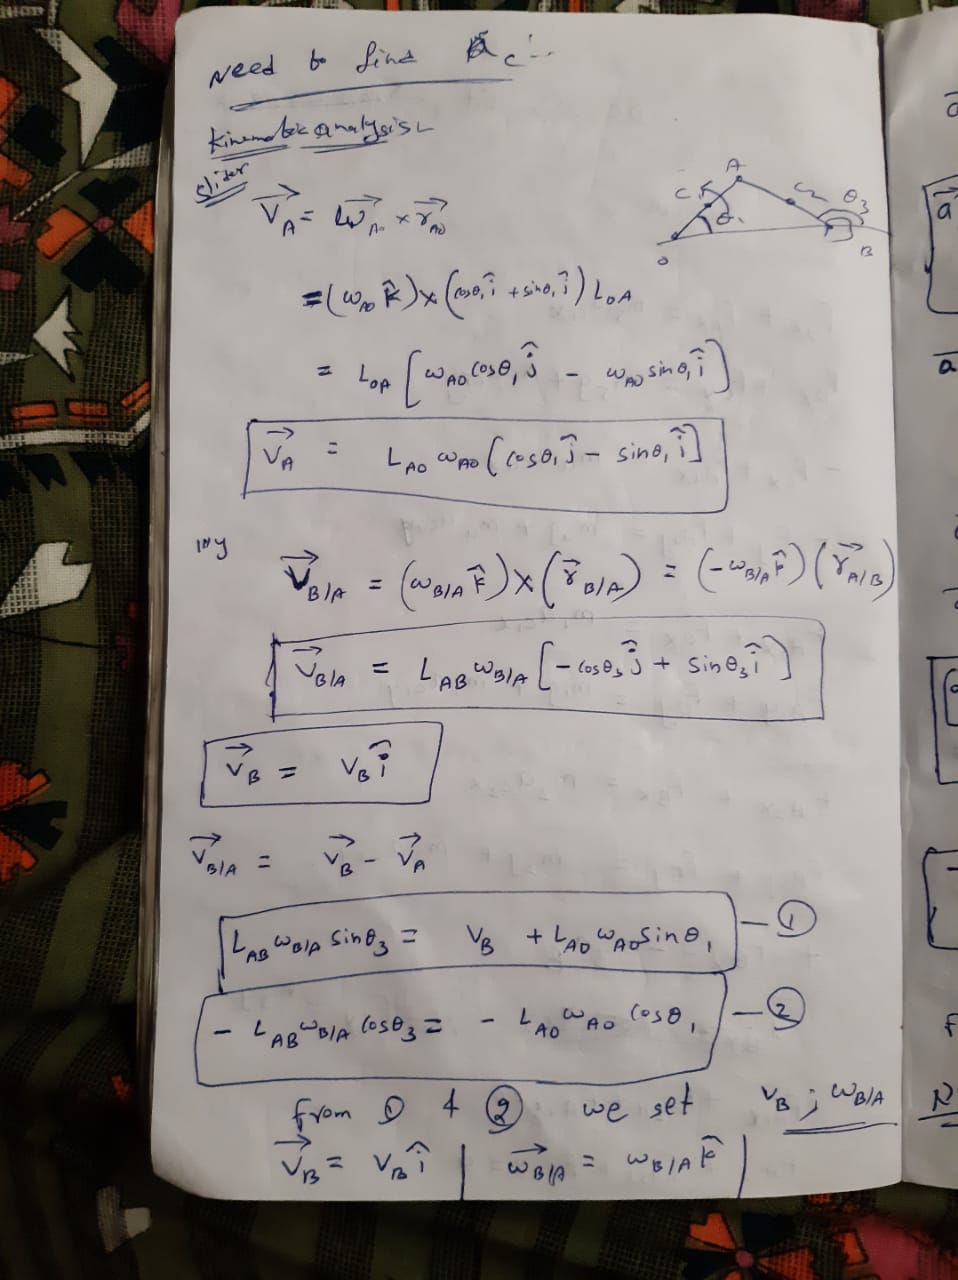 Need to find a⃗_C :-
Kinematic analysis :-
slider
V⃗_A = ω⃗_AO × r⃗_AO
= (ω_AO k̂) × (cosθ₁ î + sinθ₁ ĵ) L_OA
= L_OA [ω_AO cosθ₁ ĵ - ω_AO sinθ₁ î]
V⃗_A = L_AO ω_AO (cosθ₁ ĵ - sinθ₁ î]
A
C₁
C₂
θ₁
θ₃
O
B
lllly
V⃗_B/A = (ω_B/A k̂) × (r⃗_B/A) = (-ω_B/A k̂) (r⃗_A/B)
V⃗_B/A = L_AB ω_B/A [-cosθ₃ ĵ + sinθ₃ î]
V⃗_B = V_B î
V⃗_B/A = V⃗_B - V⃗_A
L_AB ω_B/A sinθ₃ = V_B + L_AO ω_AO sinθ₁ — ①
- L_AB ω_B/A cosθ₃ = - L_AO ω_AO cosθ₁ — ②
from ① & ② we get V_B ; ω_B/A
V⃗_B = V_B î | ω⃗_B/A = ω_B/A k̂ |